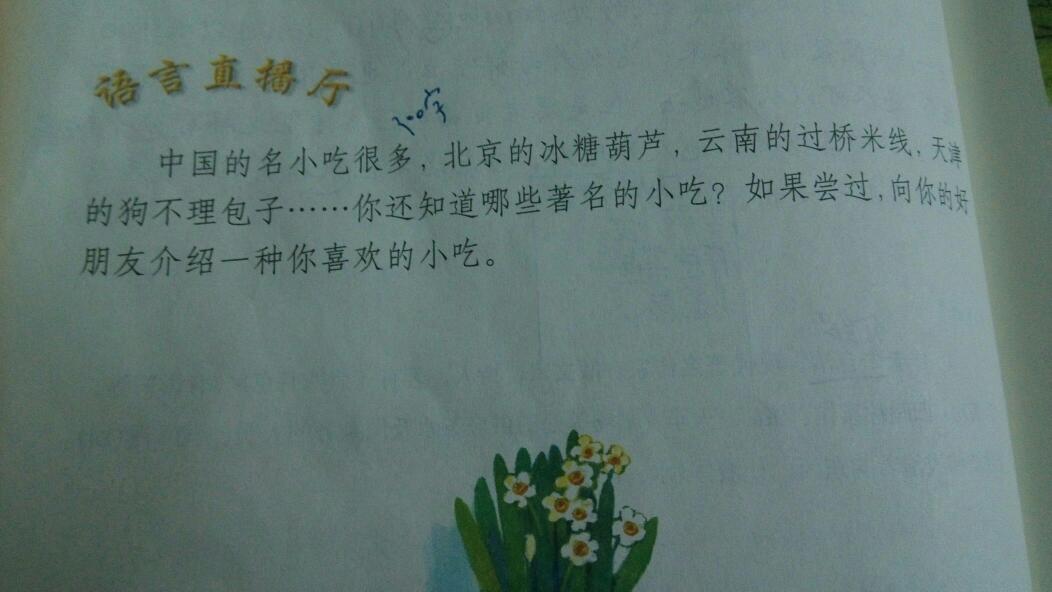 语言直播厅
中国的名小吃很多，北京的冰糖葫芦，云南的过桥米线，天津
的狗不理包子……你还知道哪些著名的小吃？如果尝过，向你的好
朋友介绍一种你喜欢的小吃。